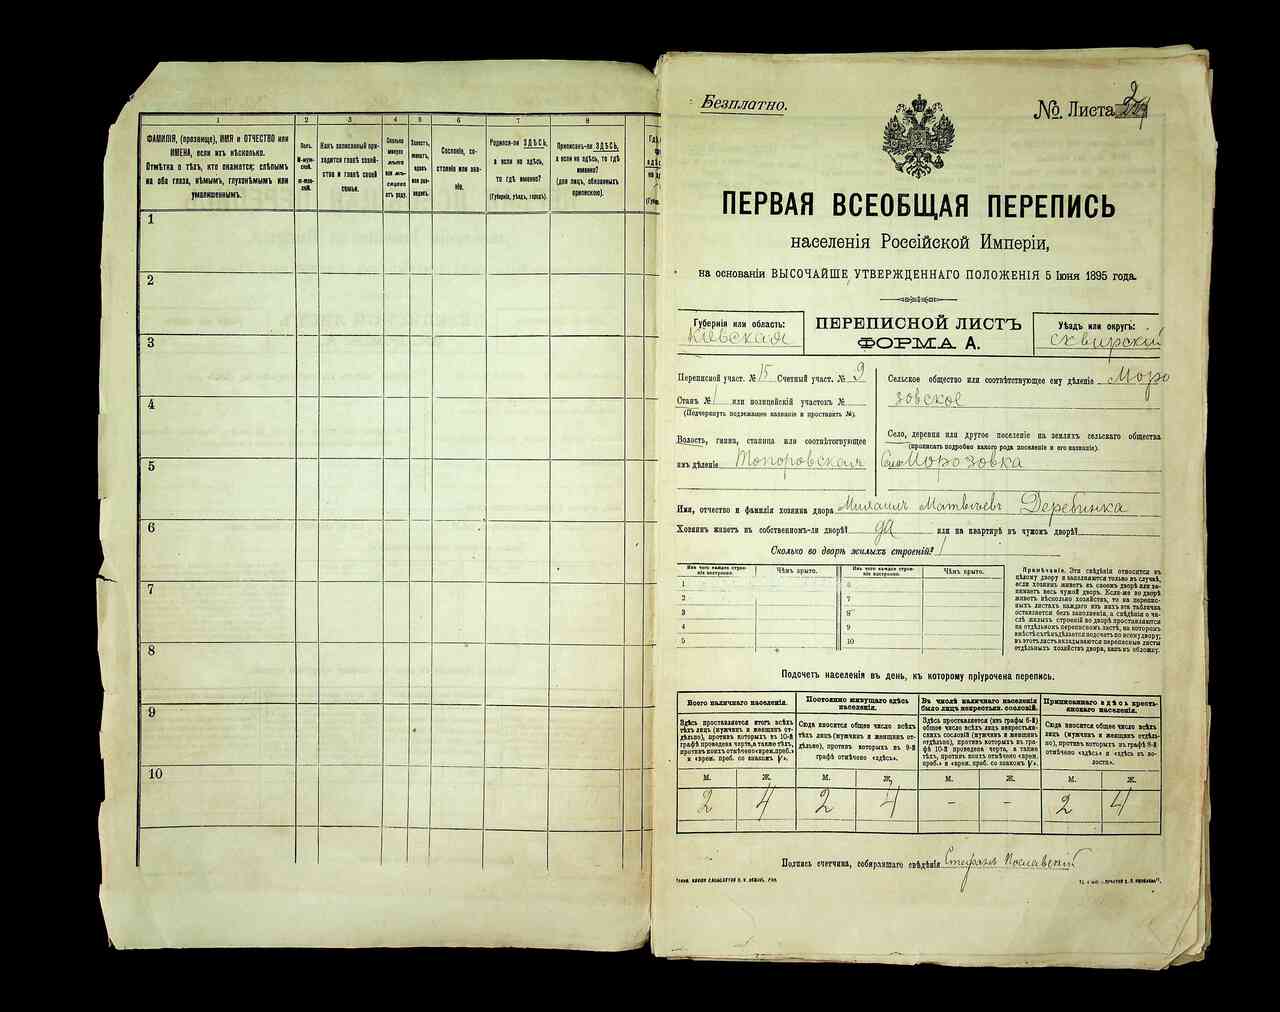 1
2
3
4
5
6
7
8
ФАМИЛІЯ, (прозвище), ИМЯ и ОТЧЕСТВО или
ИМЕНА, если ихъ нѣсколько.
Отмѣтка о тѣхъ, кто окажется: слѣпымъ
на оба глаза, нѣмымъ, глухонѣмымъ или
умалишеннымъ.
Полъ.
М-муж-
ской.
Какъ записанный при-
ходится главѣ хозяй-
ства и главѣ своей
семьи.
Сколько
минуло
лѣтъ
или мѣ-
сяцевъ
отъ роду.
Сословіе, со-
стояніе или зва-
ніе.
Родился-ли ЗДѢСЬ,
а если не здѣсь,
то гдѣ именно?
(Губернія, уѣздъ, городъ).
Приписанъ-ли ЗДѢСЬ,
а если не здѣсь, то гдѣ
именно?
(для лицъ, обязанныхъ
припискою).
1
2
3
4
5
6
7
8
9
10
Безплатно.
№. Листа 2
ПЕРВАЯ ВСЕОБЩАЯ ПЕРЕПИСЬ
населенія Россійской Имперіи,
на основаніи ВЫСОЧАЙШЕ УТВЕРЖДЕННАГО ПОЛОЖЕНІЯ 5 Іюня 1895 года.
Губернія или область:
Кіевская
ПЕРЕПИСНОЙ ЛИСТЪ
ФОРМА А.
Уѣздъ или округъ:
Сквирскій
Переписной участ. № 15 Счетный участ. № 9
Станъ № 1 или полицейскій участокъ №
(Подчеркнуть подлежащее названіе и проставить №).
Волость, гмина, станица или соотвѣтствующее
имъ дѣленіе Топоровская
Сельское общество или соотвѣтствующее ему дѣленіе Моро
зовское
Село, деревня или другое поселеніе на земляхъ сельскаго общества
(прописать подробно какого рода поселеніе и его названіе).
Село Морозовка
Имя, отчество и фамилія хозяина двора Михаилъ Матвѣевъ Деребинка
Хозяинъ живетъ въ собственномъ-ли дворѣ? да или на квартирѣ въ чужомъ дворѣ?
Сколько во дворѣ жилыхъ строеній? 1
Изъ чего каждое строе-
ніе построено.
Чѣмъ крыто.
Изъ чего каждое строе-
ніе построено.
Чѣмъ крыто.
1
2
3
4
5
6
7
8
9
10
Примѣчаніе. Эти свѣдѣнія относятся къ
цѣлому двору и заполняются только въ случаѣ,
если хозяинъ живетъ въ своемъ дворѣ или за-
нимаетъ весь чужой дворъ. Если-же во дворѣ
живетъ нѣсколько хозяйствъ, то на перепис-
ныхъ листахъ каждаго изъ нихъ эта табличка
оставляется безъ заполненія, а свѣдѣнія о чи-
слѣ жилыхъ строеній во дворѣ проставляются
на отдѣльномъ переписномъ листѣ, на которомъ
вмѣстѣ съ тѣмъ дѣлается подсчетъ по всему двору;
въ этотъ листъ вкладываются переписные листы
отдѣльныхъ хозяйствъ двора, какъ въ обложку.
Подсчетъ населенія въ день, къ которому пріурочена перепись.
Всего наличнаго населенія.
Здѣсь проставляется итогъ всѣхъ
тѣхъ лицъ (мужчинъ и женщинъ от-
дѣльно), противъ которыхъ въ 10-й
графѣ проведена черта, а также тѣхъ,
противъ коихъ отмѣчено «врем. преб.»
и «врем. преб. со знакомъ V».
Постоянно живущаго здѣсь
населенія.
Сюда вносится общее число всѣхъ
тѣхъ лицъ (мужчинъ и женщинъ от-
дѣльно), противъ которыхъ въ 9-й
графѣ отмѣчено «здѣсь».
Въ числѣ наличнаго населенія
было лицъ некрестьян. сословій.
Здѣсь проставляется (изъ графы 6-й)
общее число всѣхъ лицъ некрестьян-
скихъ сословій (мужчинъ и женщинъ
отдѣльно), противъ которыхъ въ гра-
фѣ 10-й проведена черта, а также
тѣхъ, противъ коихъ отмѣчено «врем.
преб.» и «врем. преб. со знакомъ V».
Приписаннаго здѣсь кресть-
янскаго населенія.
Сюда вносится общее число всѣхъ
лицъ (мужчинъ и женщинъ отдѣль-
но), противъ которыхъ въ графѣ 8-й
отмѣчено «здѣсь» и «здѣсь въ во-
лости».
М. Ж. М. Ж. М. Ж. М. Ж.
2 4 2 4 - - 2 4
Подпись счетчика, собиравшаго свѣдѣнія Стефанъ Пославскій